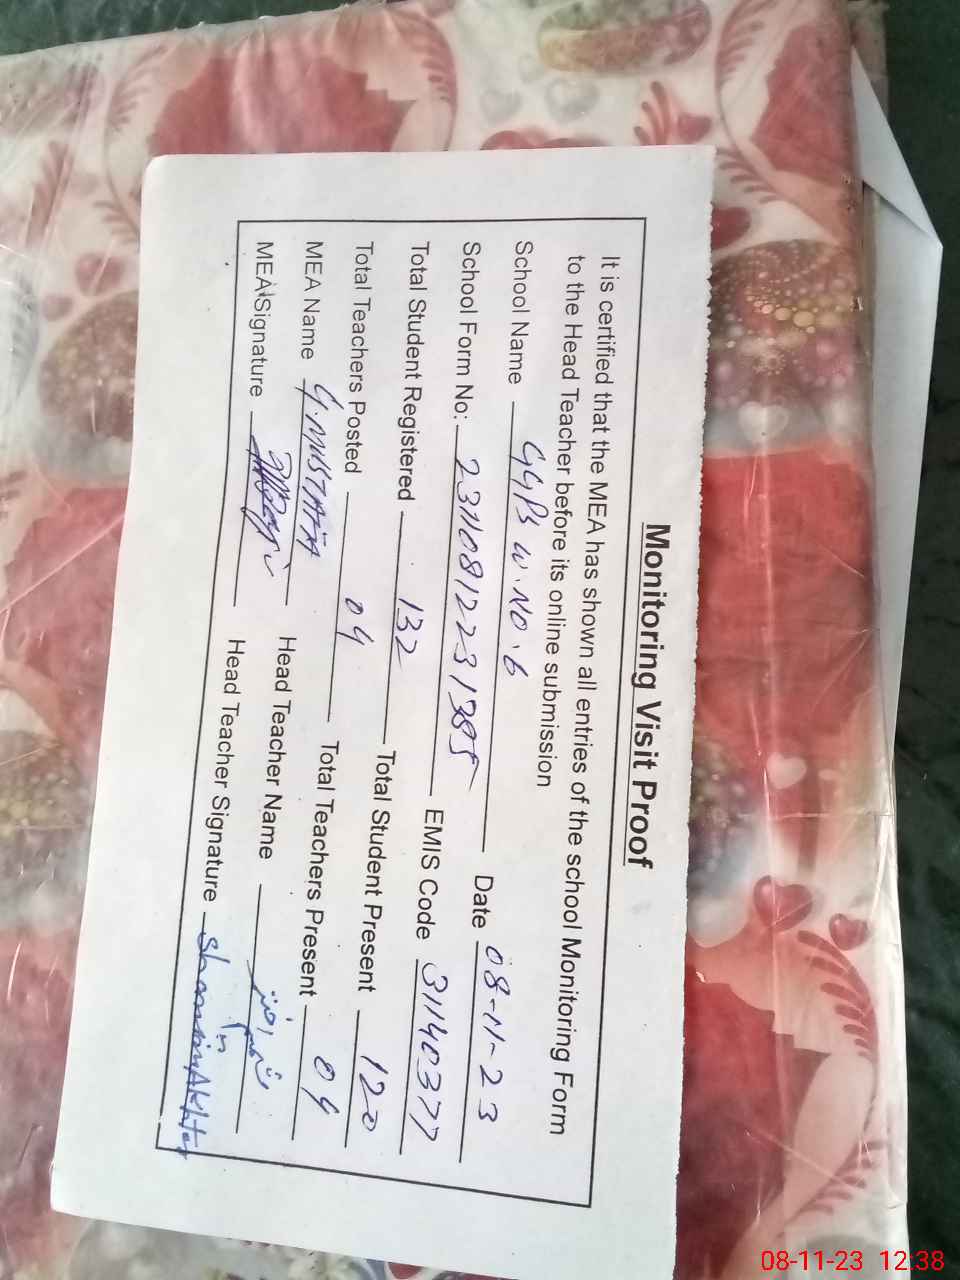 Monitoring Visit Proof
It is certified that the MEA has shown all entries of the school Monitoring Form
to the Head Teacher before its online submission
School Name GGPS W.NO.6 Date 08-11-23
School Form No: EMIS Code 31140377
Total Student Registered 132 Total Student Present 120
Total Teachers Posted 04 Total Teachers Present 04
MEA Name G.MUSTAFA Head Teacher Name
MEA Signature Head Teacher Signature Shamim Akhter
08-11-23 12:38